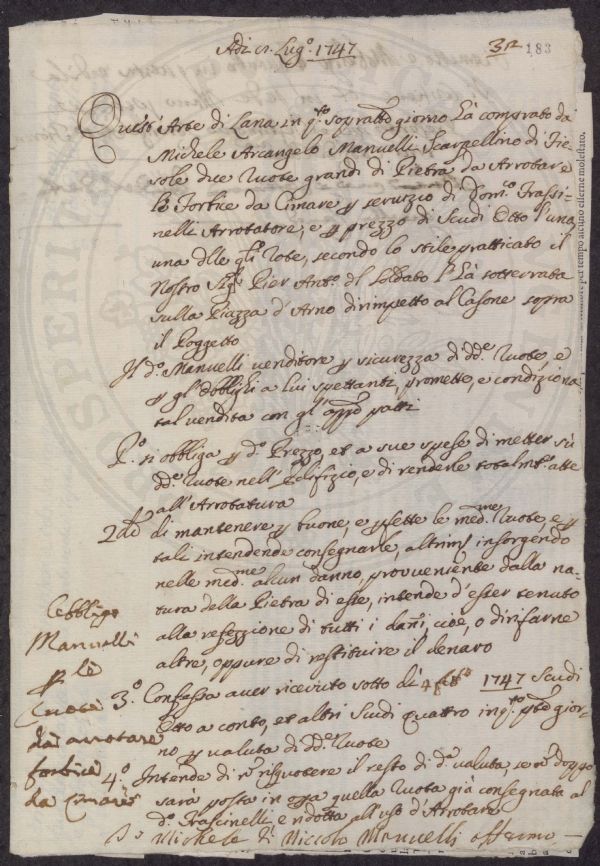 Adi 12. Lug.º 1747
312 183
Quest' Arte di Lana in q.sto sopradto giorno hà comprato da
Michele Arcangelo Manuelli Scarpellino di Fie-
sole dice Ruote grandi di Pietra da Arrotare
le Forbice da Cimare p servizio di Dom.º Frassi-
nelli Arrotatore, e p prezzo di Scudi Otto l'una
una dlle qli Rote, secondo lo stile pratticato il
Nostro Sig.r Pier Ant.º dl Soldato l'hà sotterrata
sulla Piazza d'Arno dirimpetto al Casone sopra
il Poggetto
Il d.º Manuelli venditore p sicurezza di dd.e Ruote, e
p gl'obblighi a lui spettanti, promette, e condiziona
tal vendita con gl'app.ti patti
P.º si obbliga p d.º Prezzo, et a sue spese di metter sù
dd.e Ruote nell'Edifizio, e di renderle totalmte atte
all'Arrotatura
2do di mantenere p buone, e pfette le med.me Ruote, e p
tali intendende consegnarle, altrimti insorgendo
nelle med.me alcun danno, provveniente dalla na-
tura della Pietra di esse, intende d'esser tenuto
alla refezzione di tutti i dani, cioè, o di rifarne
altre, oppure di restituire il denaro
3.º Confessa aver ricevuto sotto dì 4 1747 Scudi
Otto a conto, et altri Scudi quattro in q.sto pnte gior-
no p valuta di dd.e Ruote
4.º Intende di risquotere il resto di d.a valuta, se no doppo
sarà posta in opra quella Ruota già consegnata al
d.º Frassinelli e ridotta all'uso d'Arrotare
Io Michele di Niccolo Manuelli affermo
Obbligo
Manuelli
p le
Ruote
da arrotare
forbice
da cimare
per tempo alcuno esserne molestato.